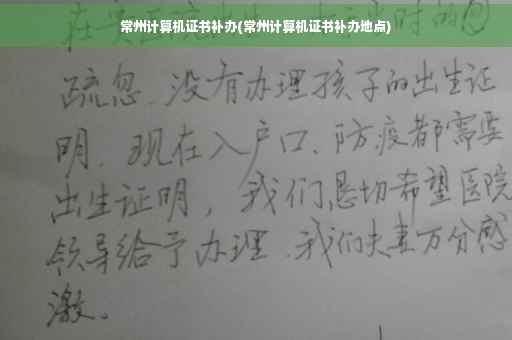 常州计算机证书补办(常州计算机证书补办地点)
疏忽、没有办理孩子的出生证
明、现在入户口、防疫都需要
出生证明，我们恳切希望医院
领导给予办理、我们夫妻万分感
激。